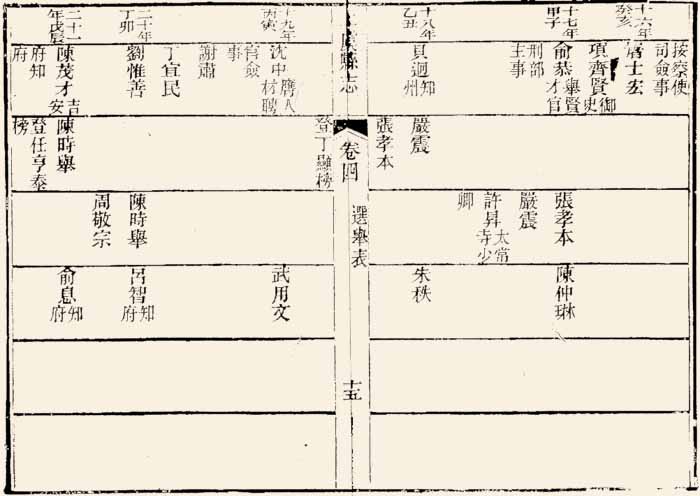 按察使
司僉事
十六年
癸亥
屠士宏
項齊賢御
史
十七年
甲子
俞恭舉賢
才官
刑部
主事
張孝本
陳仲琳
嚴震
許昇太常
寺少
卿
十八年
乙丑
貝迥知
州
嚴震
朱秩
張孝本
縣志
卷四
選舉表
十五
登丁顯榜
十九年
丙寅
沈中膺人
材聘
官僉
事
武用文
謝肅
丁宜民
二十年
丁卯
劉惟善
陳時舉
呂智知
府
周敬宗
二十一
年戊辰
陳茂才吉
安
府知
府
陳時舉
登任亨泰
榜
俞息知
府